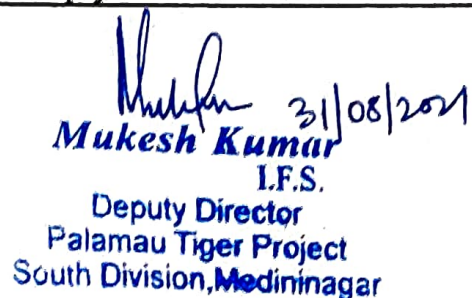 31/08/2021
Mukesh Kumar
I.F.S.
Deputy Director
Palamau Tiger Project
South Division,Medininagar